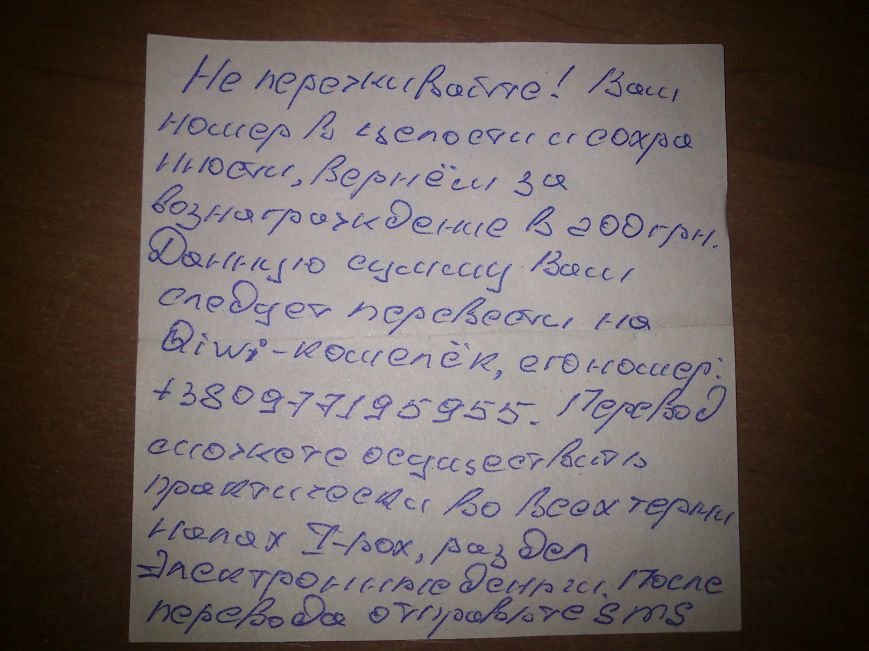 Не переживайте! Ваш
номер в целости и сохра
нности, вернём за
вознаграждение в 200 грн.
Данную сумму Вам
следует перевести на
Qiwi-кошелёк, его номер:
+380977195955. Перевод
сможете осуществить
практически во всех терми
налах I-box, раздел
Электронные деньги. После
перевода отправьте SMS